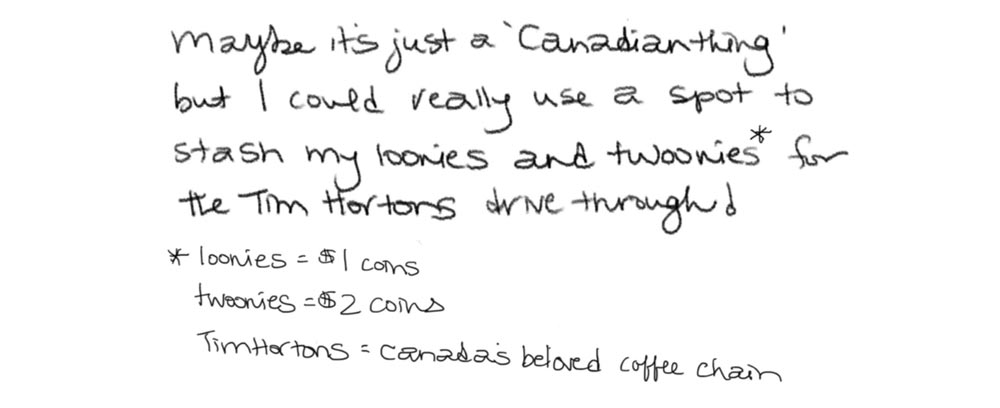 maybe it's just a 'Canadian thing'
but I could really use a spot to
stash my loonies and twoonies* for
the Tim Hortons drive through!
* loonies = $1 coins
twoonies = $2 coins
Tim Hortons = Canada's beloved coffee chain